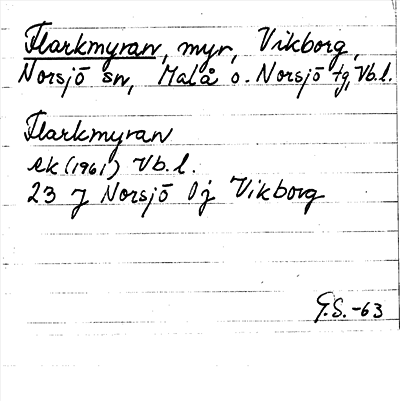 Flarkmyran, myr, Vikborg,
Norsjö sn, Malå o. Norsjö tg, Vb.l.
Flarkmyran
ek (1961) Vb.l.
23 J Norsjö 0j Vikborg
G.S. -63